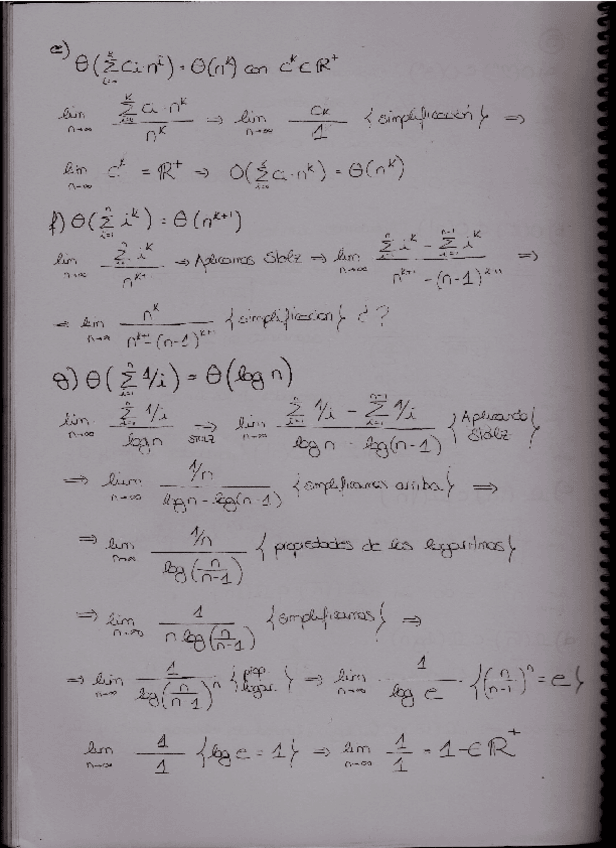 e) Θ(∑_{i=0}^{k} Ci·n^i) = Θ(n^k) con c^k ∈ ℝ^+
lim_{n→∞} (∑_{i=0}^{k} Ci·n^k)/(n^k) ⇒ lim_{n→∞} Ck/1 {simplificación} ⇒
lim_{n→∞} C^k = ℝ^+ ⇒ Θ(∑ Ci·n^k) = Θ(n^k)
f) Θ(∑_{i=1}^{n} i^k) = Θ(n^{k+1})
lim_{n→∞} (∑_{i=1}^{n} i^k)/(n^{k+1}) → Aplicamos Stolz → lim_{n→∞} (∑_{i=1}^{n} i^k - ∑_{i=1}^{n-1} i^k)/(n^{k+1} - (n-1)^{k+1}) ⇒
⇒ lim_{n→∞} n^k/(n^{k+1} - (n-1)^{k+1}) {simplificacion} ¿?
g) Θ(∑_{i=1}^{n} 1/i) = Θ(log n)
lim_{n→∞} (∑_{i=1}^{n} 1/i)/(log n) →_{STOLZ} lim_{n→∞} (∑_{i=1}^{n} 1/i - ∑_{i=1}^{n-1} 1/i)/(log n - log(n-1)) {Aplicando Stolz}
⇒ lim_{n→∞} (1/n)/(log n - log(n-1)) {simplificamos arriba} ⇒
⇒ lim_{n→∞} (1/n)/(log(n/(n-1))) {propiedades de los logaritmos}
⇒ lim_{n→∞} 1/(n log(n/(n-1))) {simplificamos} ⇒
⇒ lim_{n→∞} 1/(log(n/(n-1))^n) {prop. logar.} ⇒ lim_{n→∞} 1/(log e) {(n/(n-1))^n = e}
lim_{n→∞} 1/1 {log e = 1} ⇒ lim_{n→∞} 1/1 = 1 ∈ ℝ^+